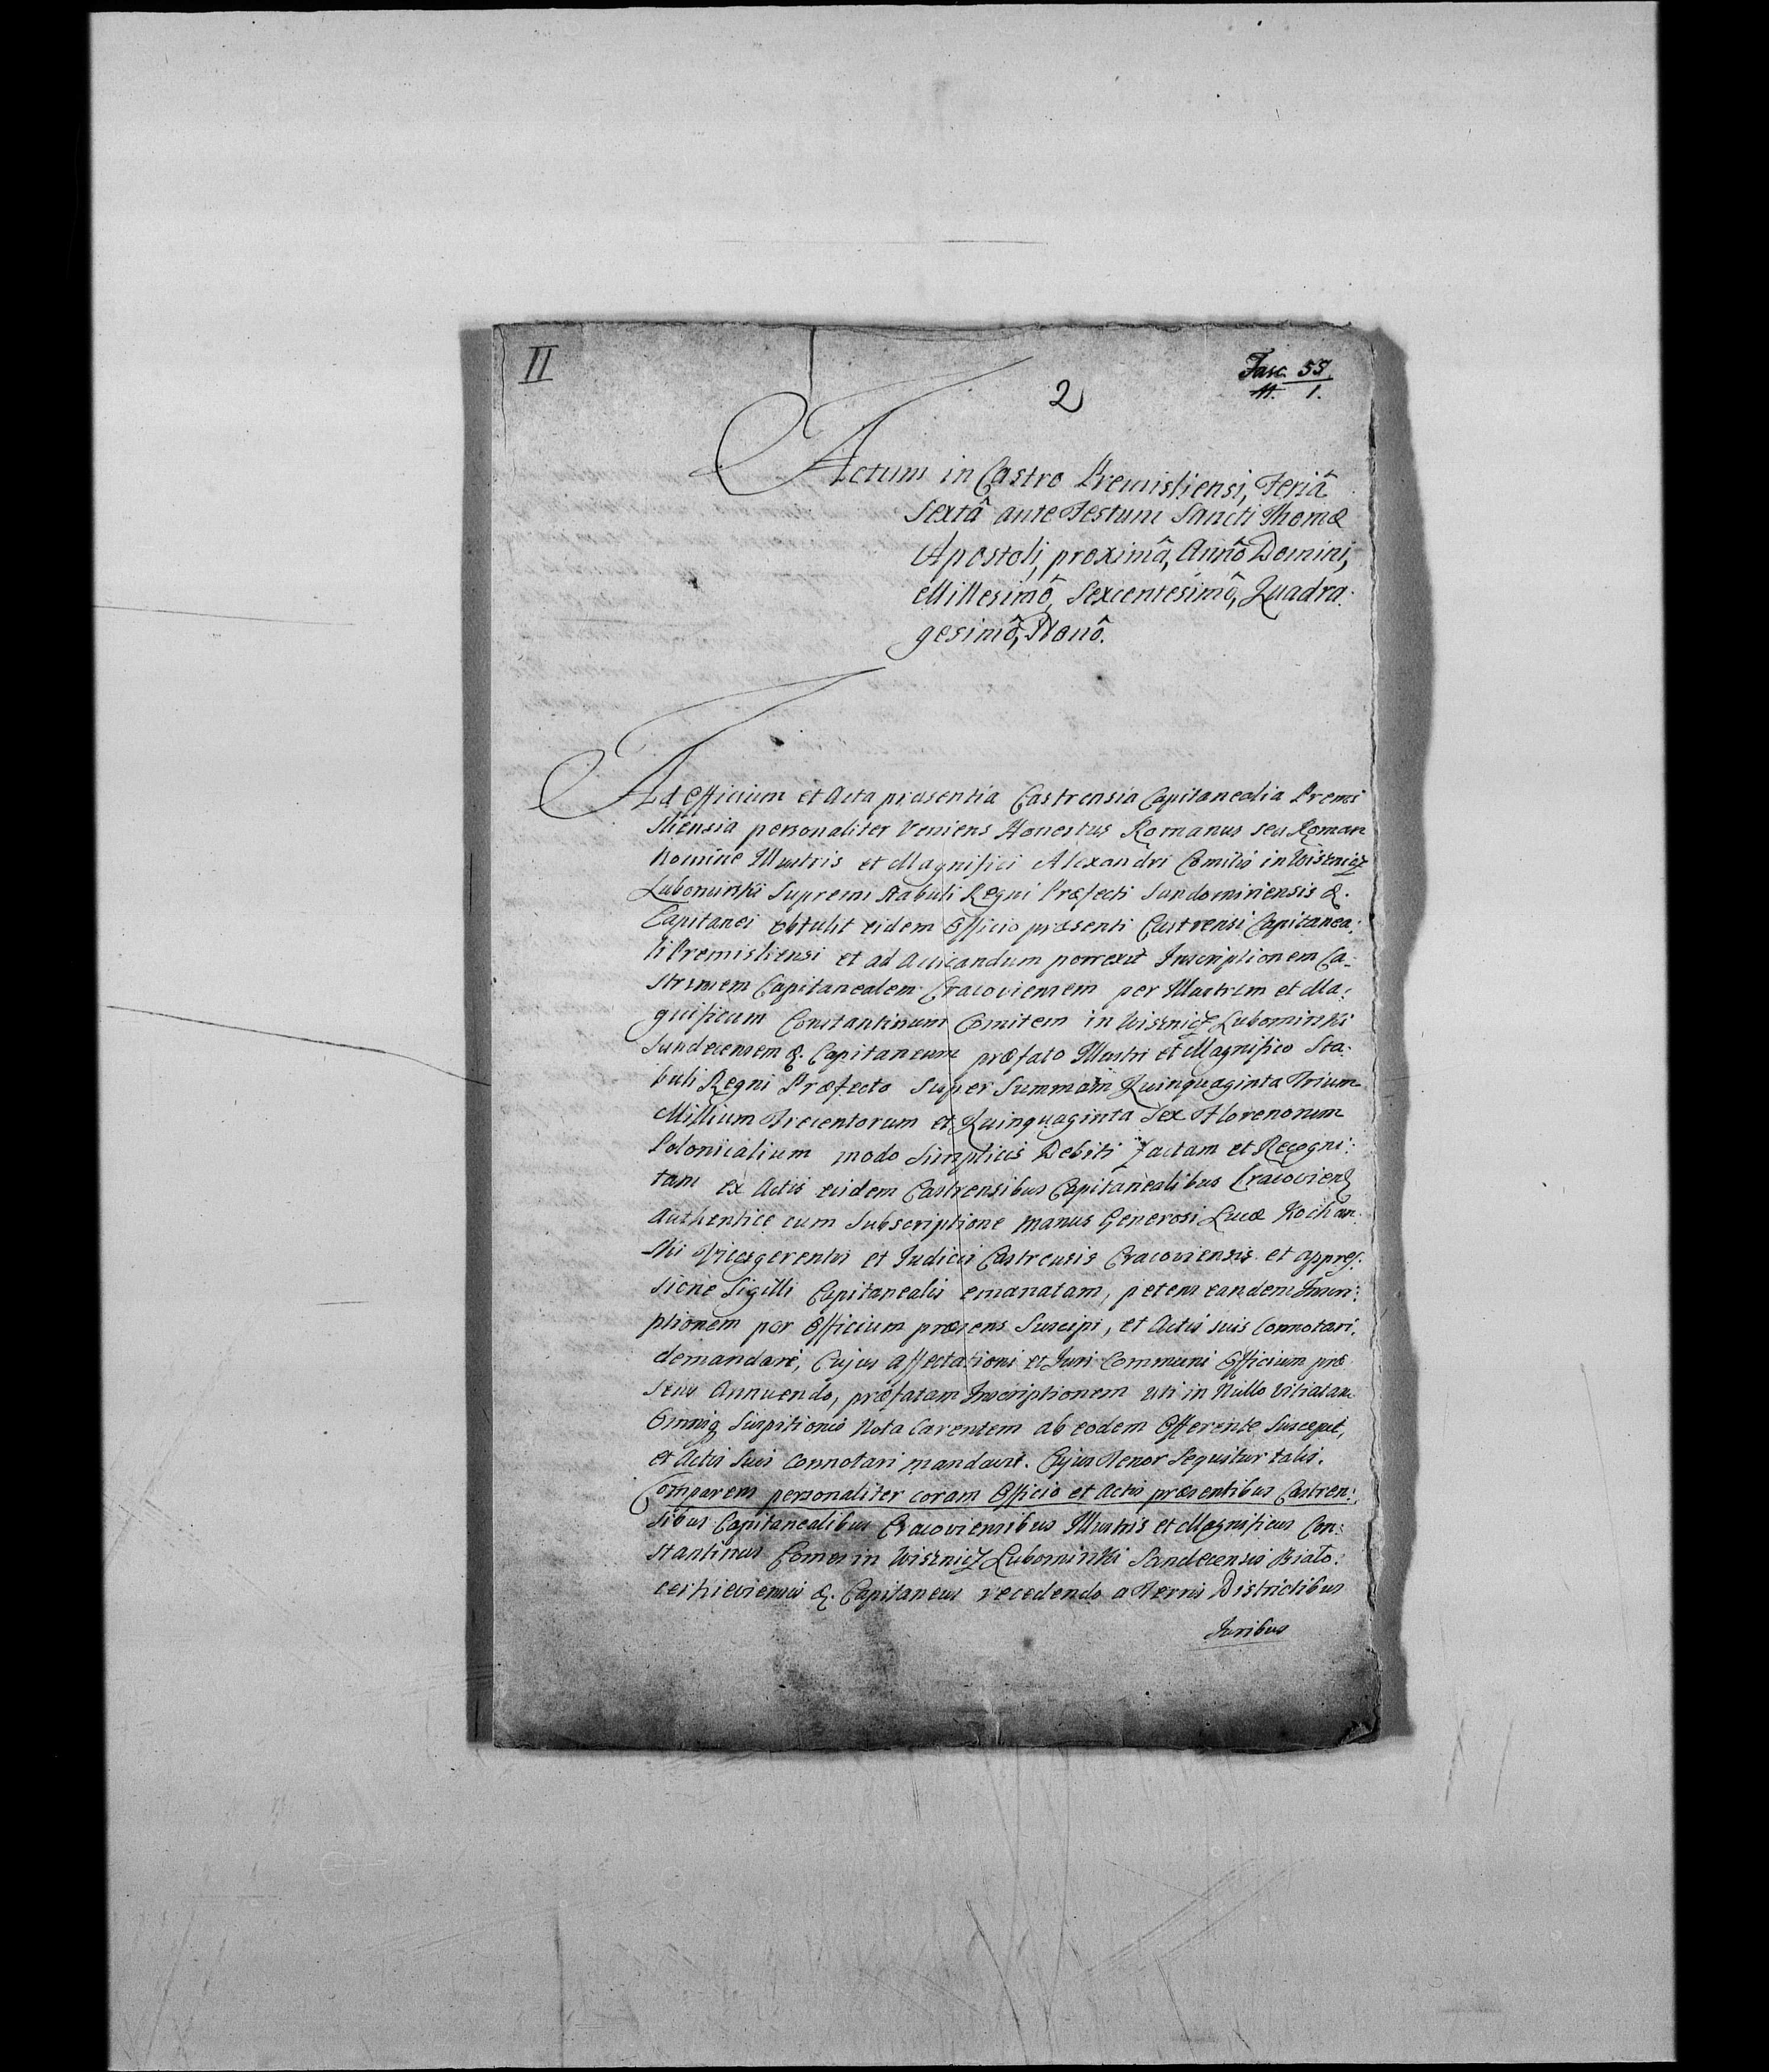 II
Fasc. 55.
N. 1.
2
Actum in Castro Premisliensi, Feriâ
Sextâ ante Festum Sancti Thomæ
Apostoli, proximâ, Annô Domini,
Millesimô, Sexcentesimô, Quadra:
gesimô, Nonô.
Ad Officium et Acta præsentia Castrensia Capitanealia Premi
sliensia personaliter Veniens Honestus Romanus seu Roman
Nomine Illustris et Magnifici Alexandri Comitis in Wisznicz
Lubomirski Supremi Stabuli Regni Præfecti Sandomiriensis &.
Capitanei obtulit eidem Officio præsenti Castrensi Capitanea:
li Premisliensi et ad Acticandum porrexit Inscriptionem Ca:
strensem Capitanealem Cracoviensem per Illustrem et Ma:
gnificum Constantinum Comitem in Wisznicz Lubomirski
Sandecensem &. Capitaneum præfato Illustri et Magnifico Sta:
buli Regni Præfecto Super Summam Quinquaginta Trium
Millium Trecentorum et Quinquaginta Sex Florenorum
Polonicalium modo Simplicis Debiti factam et Recogni:
tam ex Actis eisdem Castrensibus Capitanealibus Cracovien
Authentice cum Subscriptione manus Generosi Lucæ Kochan
ski Vicesgerentis et Iudicis Castrensis Cracoviensis et appres:
sione Sigilli Capitanealis emanatam, petens eandem Inscri:
ptionem per Officium præsens Suscipi, et Actis suis Connotari.
demandari, Cujus affectationi et Juri Communi Officium præ
sens Annuendo, præfatam Inscriptionem uti in Nullo Vitiatam
Omniq Suspitionis Nota Carentem ab eodem Offerente Suscepit,
et Actis Suis Connotari mandavit. Cujus Tenor Sequitur talis.
Comparens personaliter coram Officio et Actis præsentibus Castren:
sibus Capitanealibus Cracoviensibus Illustris et Magnificus Con:
stantinus Comes in Wisznicz Lubomirski Sandecensis Biało:
cerkieviensis &. Capitaneus recedendo a Terris Districtibus
Juribus